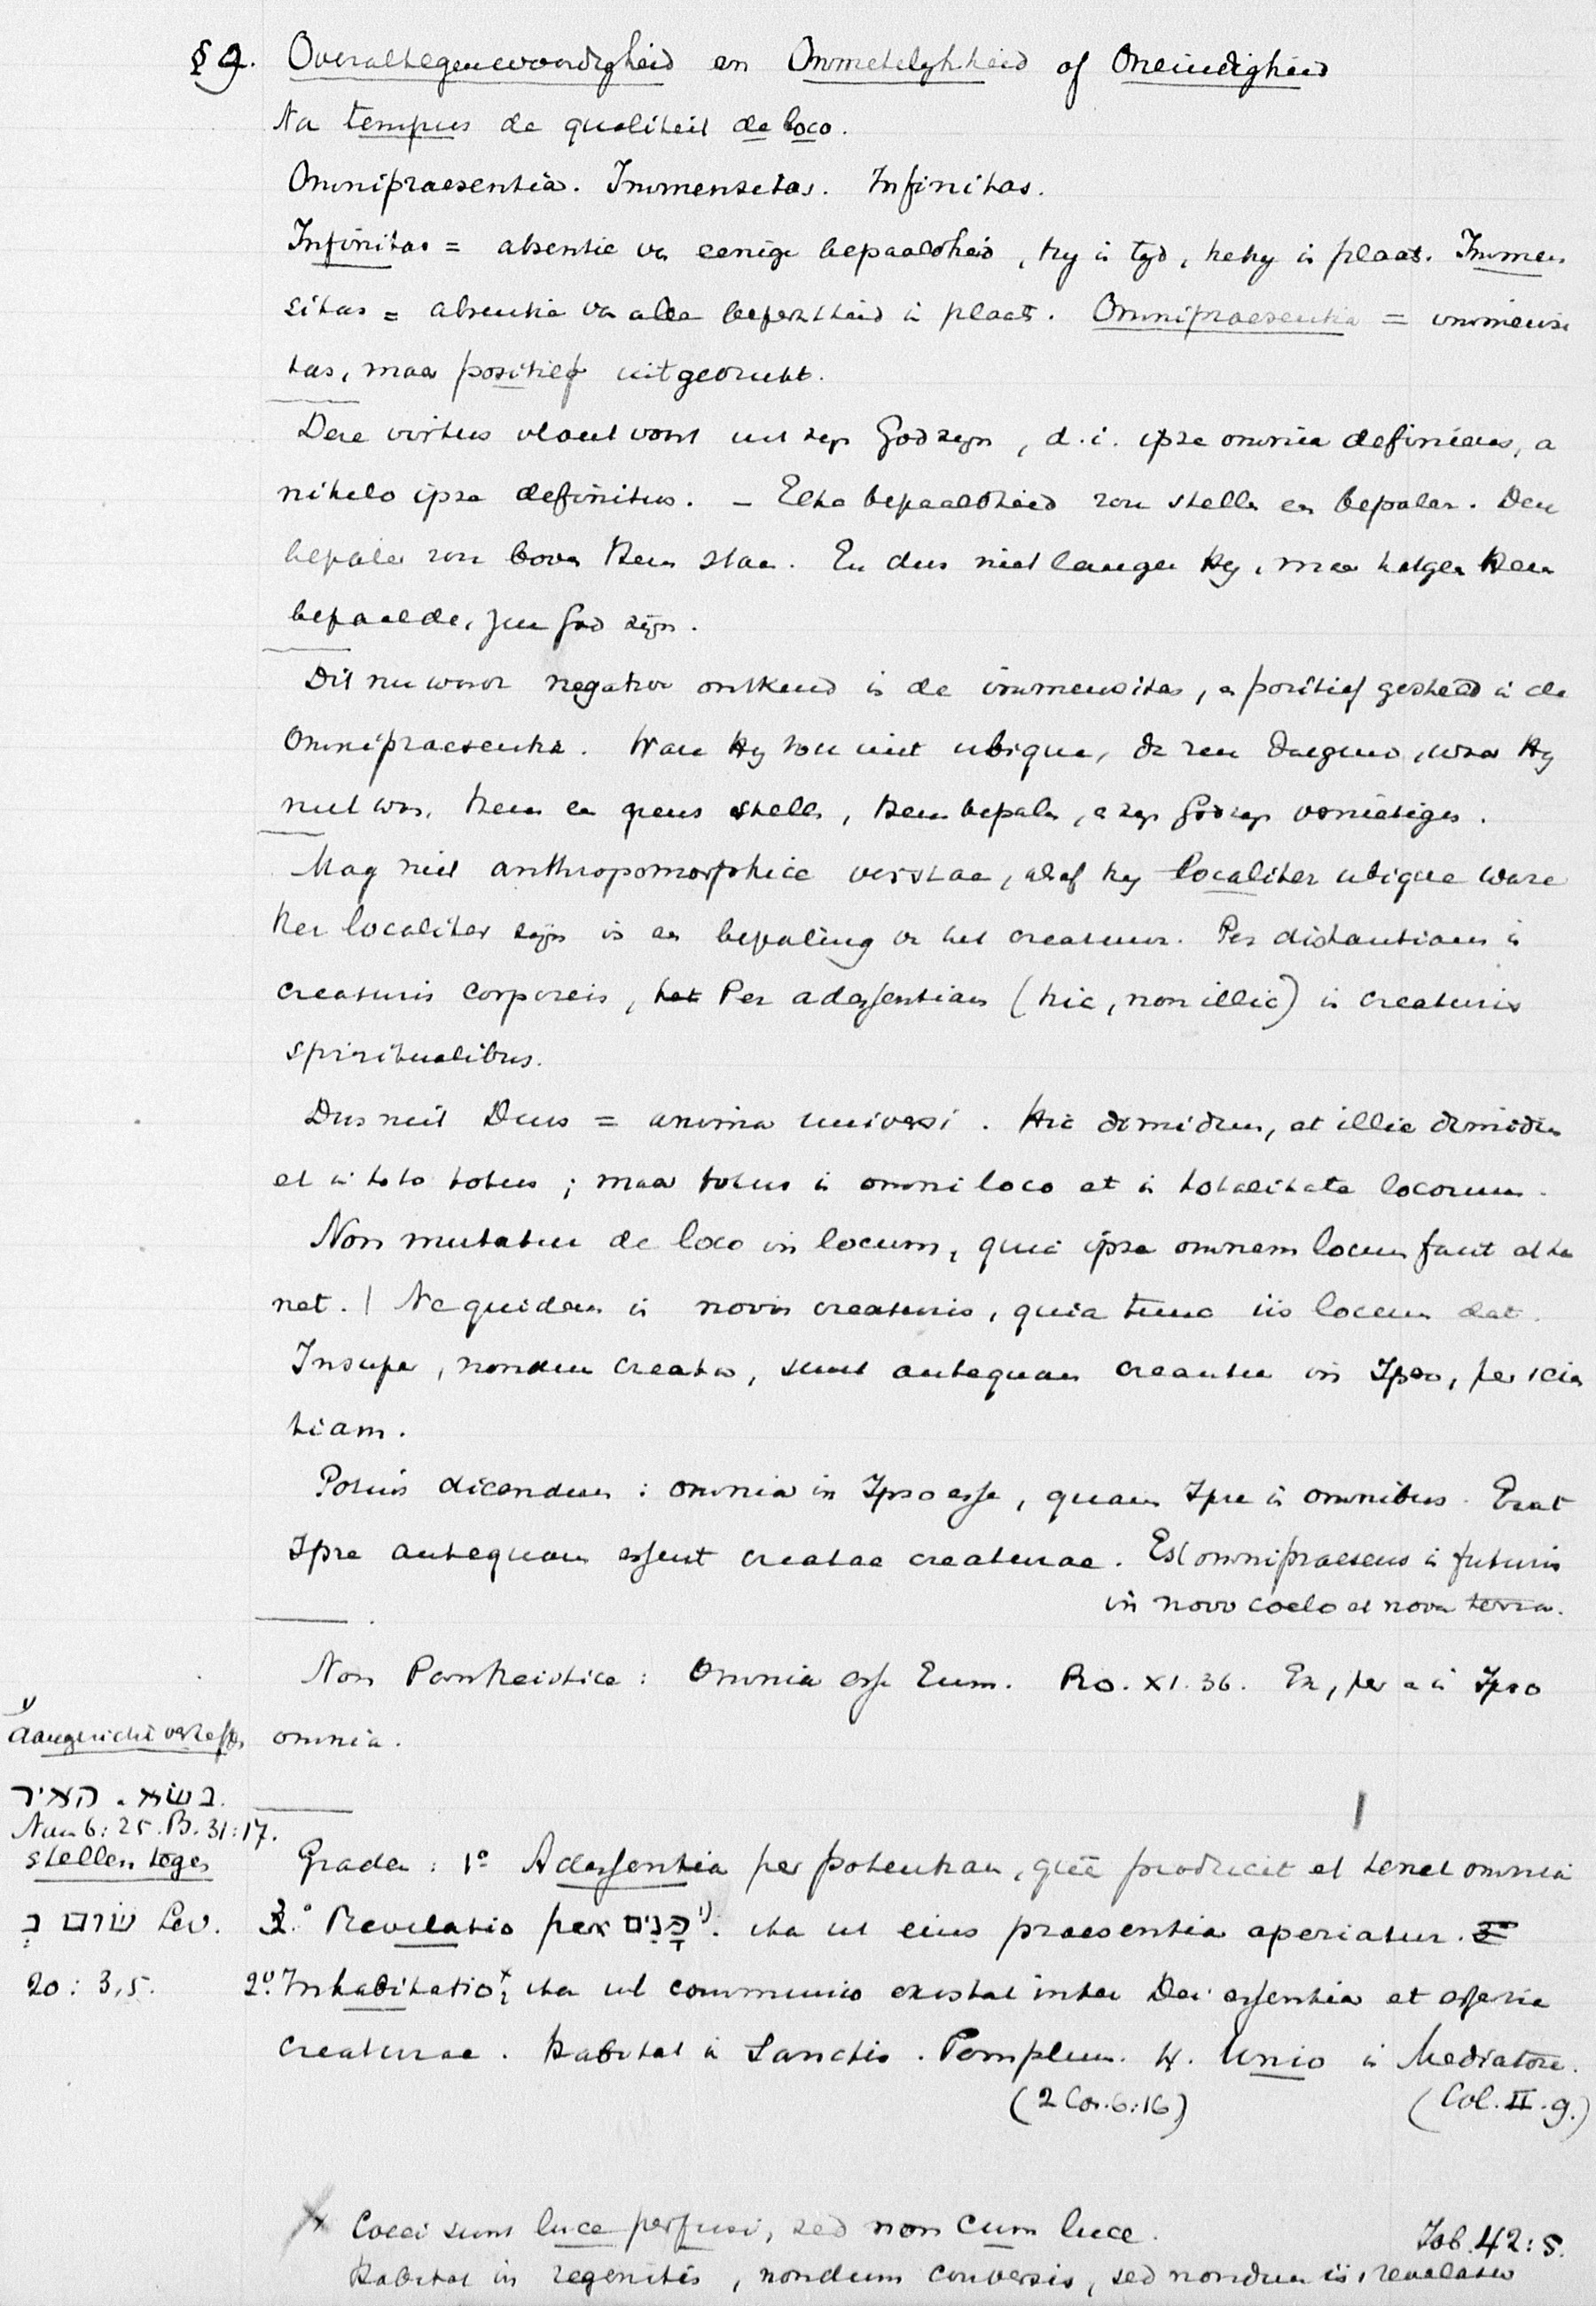 § 9. Overaltegenwoordigheid en Onmetelykheid of Oneindigheid
Na tempus de qualiteit de loco.
Omnipraesentia. Immensitas. Infinitas.
Infinitas = absentie v. eenige bepaaldheid, hy in tyd, hetzy in plaats. Immen
sitas = absentia van alle beperktheid in plaats. Omnipraesentia = immensi
tas, maar positief uitgedrukt.
Deze virtus vloeit voort uit zyn God zyn, d.i. ipse omnia definiens, a
nihilo ipse definitus. — Elke bepaaldheid zou stellen een bepaler. Deze
bepaler zou boven Hem staan. En dus niet langer Hy, maar hetgeen Hem
bepaalde, zou God zijn.
Dit nu wordt negative ontkend in de immensitas, en positief gesteld in de
Omnipraesentia. Ware Hy nu niet ubique, dan zou datgene, waar Hy
niet was, Hem een grens stellen, Hem bepalen, en zyn God zyn vernietigen.
Mag niet anthropomorphice verstaan, alsof hy localiter ubique ware
Het localiter zijn is een bepaling v. het creatuur. Per distantiam in
creaturis corporeis, het Per adessentiam (hic, non illic) in creaturis
spiritualibus.
Dus niet Deus = anima universi. Hic dimidium, et illic dimidium
et in toto totus; maar totus in omni loco et in totalitate locorum.
Non mutatur de loco in locum, quia ipse omnem locum facit et te
net. | Ne quidem in novis creaturis, quia tunc iis locum dat.
Insuper, nondum creatis, sunt antequam creantur in Ipso, per scien
tiam.
Potius dicendum: omnia in Ipso esse, quam Ipse in omnibus. Erat
Ipse antequam essent creatae creaturae. Est omnipraesens in futuris
in novo coelo et nova terra.
Non Pantheistice: Omnia esse Eum. Ro. XI. 36. Ex, per et in Ipso
omnia.
1)
aangezicht verheffen
האיר . נשוא.
Num 6:25. Ps. 31:17.
stellen tegen
שׂום ב Lev.
20: 3,5.
Graden: 1º Adessentia per potentiam, quae producit et tenet omnia
3.º Revelatio per פָּנִים 1). ita ut eius praesentia aperiatur. 3º
2º. Inhabitatio x, ita ut communio existat inter Dei essentia et essentia
creaturae. Habitat in Sanctis. Templum. 4. Unio in Mediatore.
(2 Cor. 6:16) (Col. II. 9.)
x Coeci sunt luce perfusi, sed non cum luce.
Job. 42:5.
Habitat in regenitis, nondum conversis, sed nondum iis revelatus